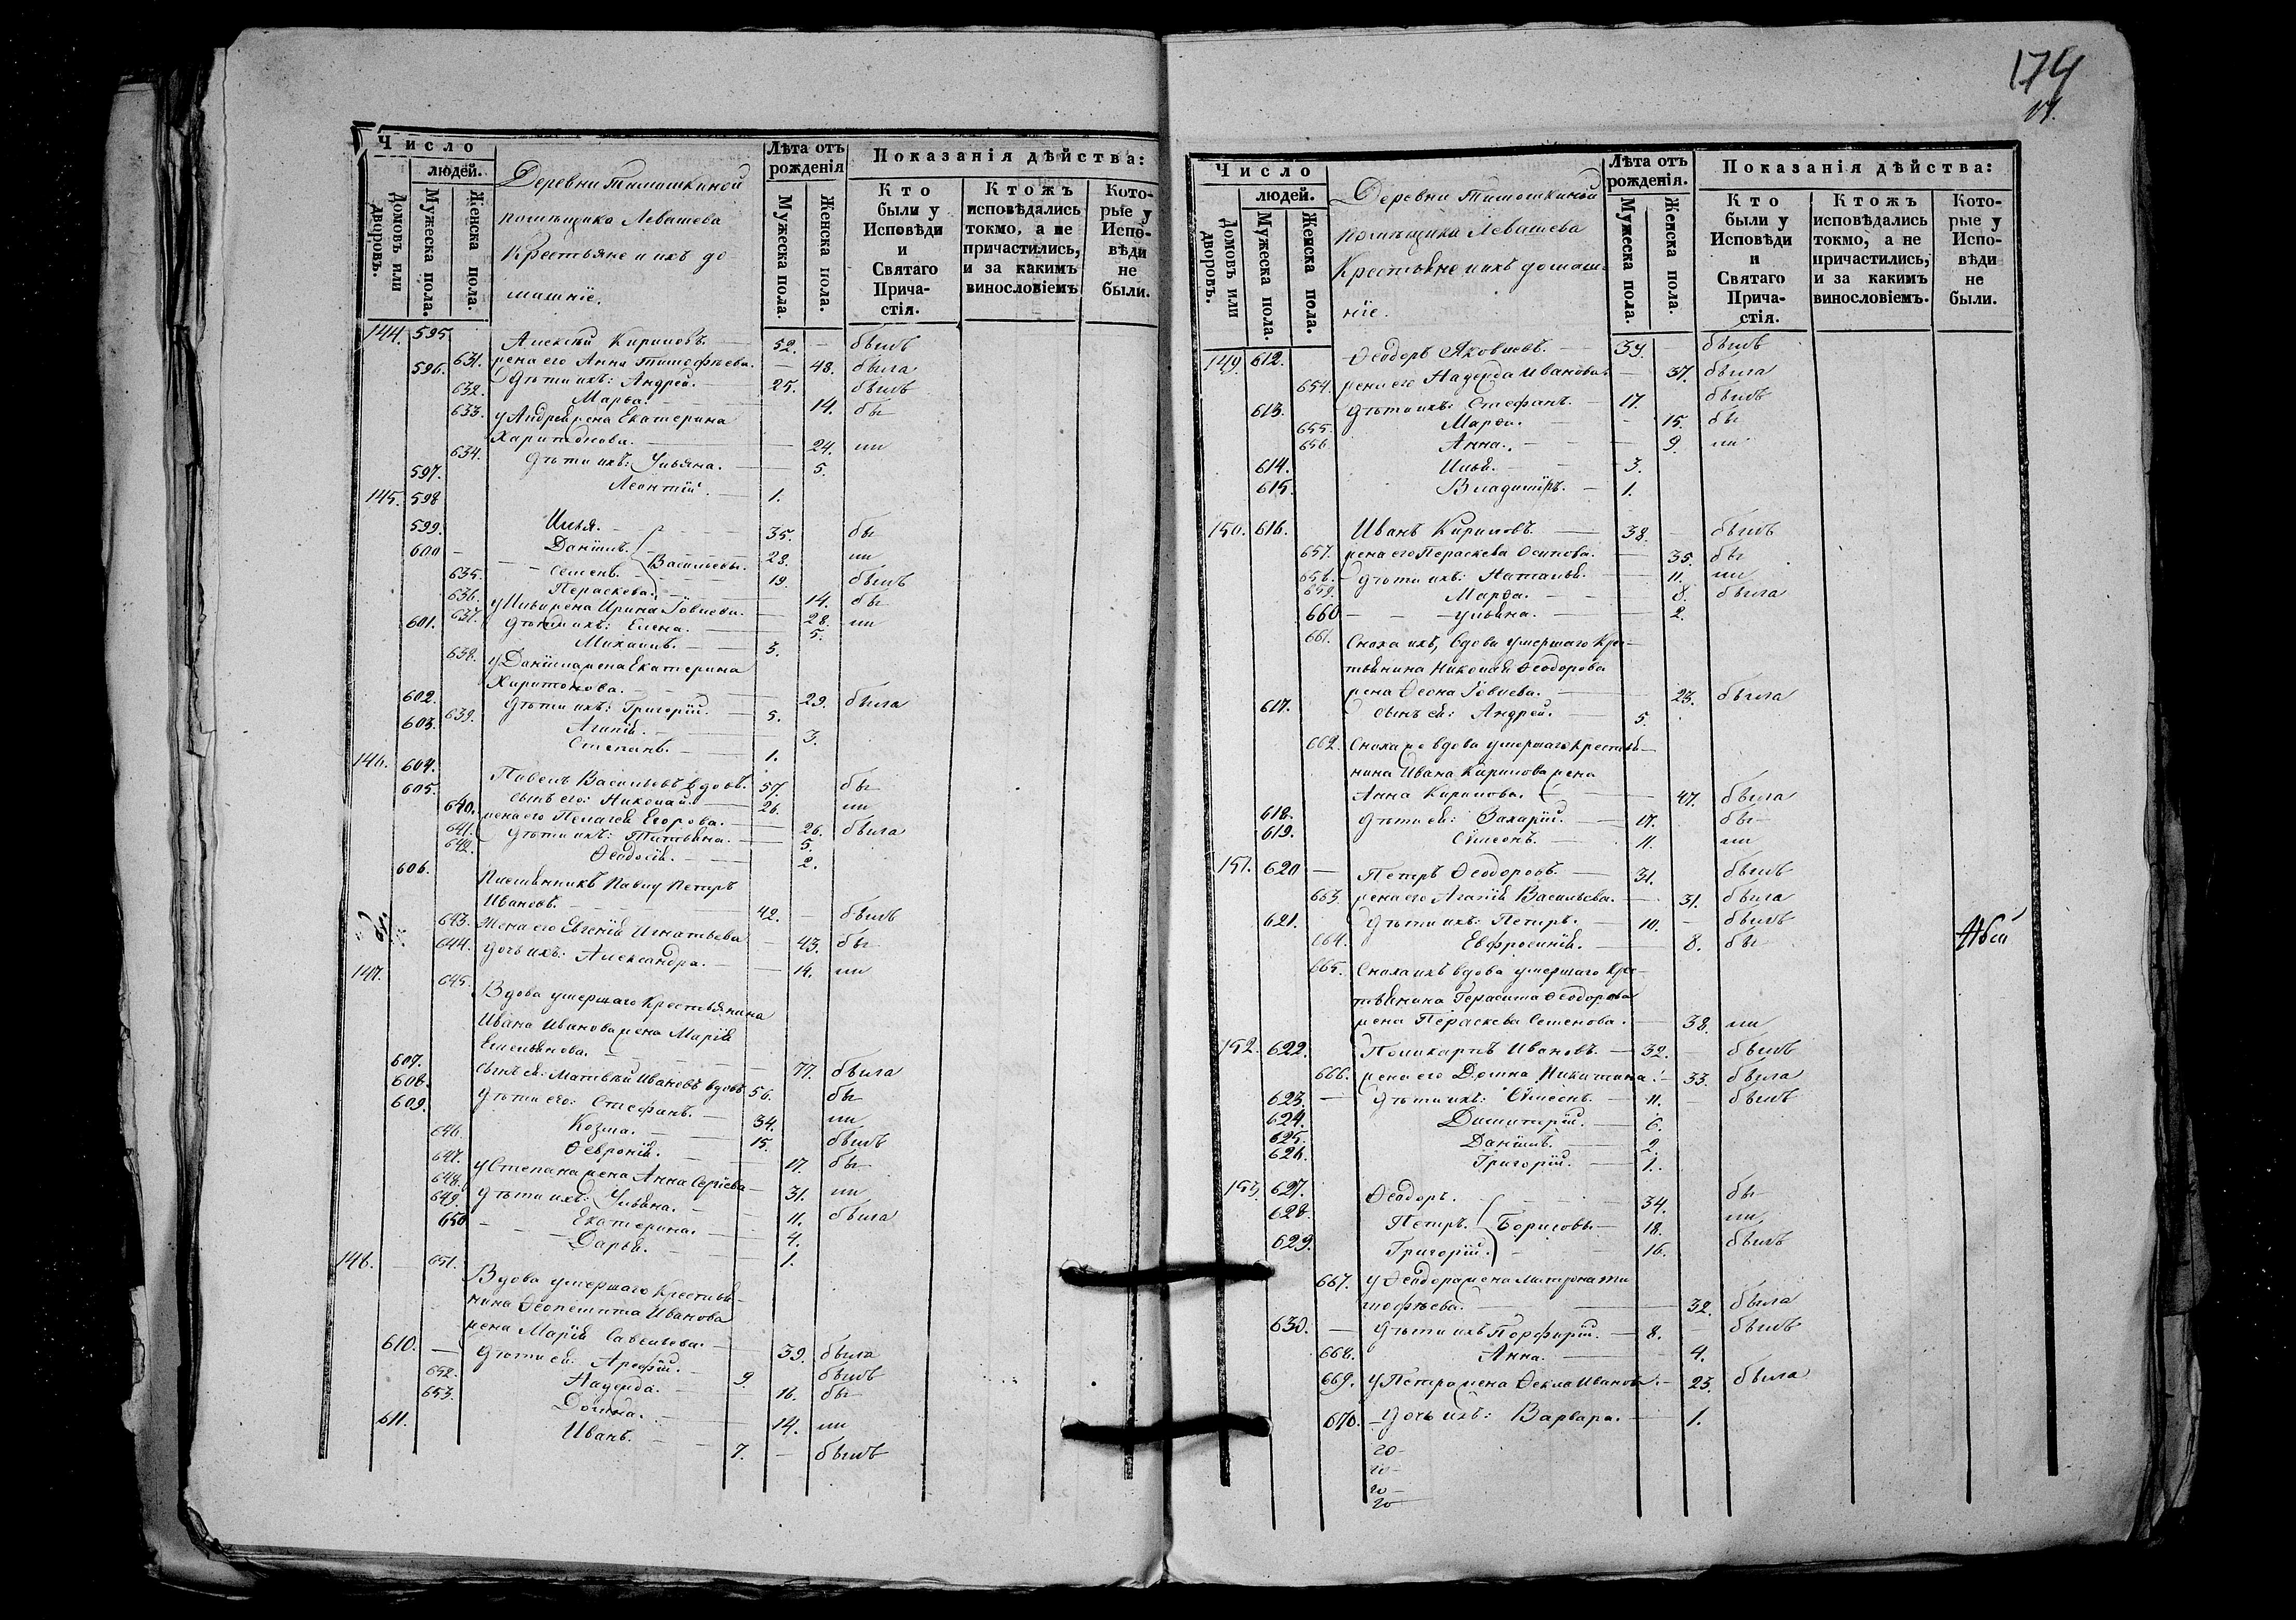 174
Число
людей.
Домовъ или дворовъ.
Мужеска пола.
Женска пола.
Деревни Тимошкиной
помѣщика Левашева
Крестьяне и ихъ до
машніе.
Лѣта отъ рожденія
Мужеска пола.
Женска пола.
Показанія дѣйства:
Кто были у Исповѣди и Святаго Прича-стія.
Ктожъ исповѣдались токмо, а не причастились, и за какимъ винословіемъ
Кото-рые у Испо-вѣди не были.
144. 595 Алексѣй Кириловъ. 52. – былъ
631. жена его Анна Тимофѣева. – 48. была
596. Дѣти ихъ: Андрей. 25. былъ
632. Марѳа. 14. бы
633. у Андрея жена Екатерина
Харитонова. 24. ли
634. дѣти ихъ: Ульяна. 5.
597. Леонтий. 1.
145. 598 Илья. 35. бы
599. Даніилъ. 28. ли
600 Семенъ. Васильевы. 19. былъ
635. Параскева. 14. бы
636. у Ильи жена Ирина Іовлева. 28. ли
637. дѣти ихъ: Елена. 5.
601. Михаилъ. 3.
638. у Даніила жена Екатерина
Харитонова. 29. была
602. дѣти ихъ: Григорій. 5.
639. Агапія. 3.
603. Степанъ. 1.
146. 604. Павелъ Васильевъ вдовъ. 57. бы
605. сынъ его: Николай. 26. ли
640. жена его Пелагея Егорова. 26. была
641. дѣти ихъ: Татьяна. 5.
642. Ѳеодосія. 2.
606. Племянникъ Павлу Петръ
Ивановъ. 42. – былъ
643. Жена его Евгенія Игнатьева – 43. бы
644. дочь ихъ: Александра. 14. ли
147. 645. Вдова умершаго Крестьянина
Ивана Иванова жена Марія
Емельянова. 77. была
607. сынъ ея: Матвѣй Ивановъ вдовъ 56. бы
608. дѣти его: Стефанъ. 34. ли
609. Козма. 15. былъ
646. Ѳевронія. 17. бы
647. у Степана жена Анна Сергѣева 31. ли
648. дѣти ихъ: Ульяна. 11. была
649. Екатерина. 4.
650 Дарья. 1.
148. 651. Вдова умершаго Крестья-
нина Ѳеопемпта Иванова
жена Марія Савельева. 39. была
610. дѣти ея: Арефій. 9. былъ
652. Надежда. 16. бы
653. Домна. 14. ли
611. Иванъ. 7. – былъ
Число
людей.
Домовъ или дворовъ.
Мужеска пола.
Женска пола.
Деревни Тимошкиной
помѣщика Левашева
Крестьяне и ихъ домаш-
ніе.
Лѣта отъ рожденія.
Мужеска пола.
Женска пола.
Показанія дѣйства:
Кто были у Исповѣди и Святаго Прича-стія.
Ктожъ исповѣдались токмо, а не причастились, и за какимъ винословіемъ.
Кото-рые у Испо-вѣди не были.
149. 612. Ѳеодоръ Яковлевъ. 39. былъ
654. жена его Надежда Иванова. – 37. была
613. дѣти ихъ: Стефанъ. 17. былъ
655. Марѳа. 15. бы
656. Анна. 9. ли
614. Илья. 3.
615. Владиміръ. 1.
150. 616. Иванъ Кириловъ. 38. былъ
657. жена его Параскева Осипова. 35. бы
658. дѣти ихъ: Наталья. 11. ли
659. Марѳа. 8. была
660 Ульяна. 2.
661. Сноха ихъ, вдова умершаго Кре-
стьянина Николая Ѳеодорова
жена Ѳеона Іовлева. 23. была
617. сынъ ея: Андрей. 5.
662. Сноха же вдова умершаго Крестья-
нина Ивана Кирилова жена
Анна Кирилова. 47. была
618. дѣти ея: Захарій. 17. бы
619. Сѵмеонъ. 11. ли
151. 620 Петръ Ѳеодоровъ. 31. былъ
663. жена его Агапія Васильева. 31. была
621. дѣти ихъ: Петръ. 10. – былъ
664. Евфросинія. 8. бы
665. Сноха ихъ вдова умершаго Кре-
стьянина Герасима Ѳеодорова
жена Параскева Семенова. 38. ли
152. 622. Поликарпъ Ивановъ. 32. – былъ
666. жена его Домна Никитина. 33. была
623. дѣти ихъ: Сѵмеонъ. 11. – былъ
624. Димитрій. 6.
625. Даніилъ. 2.
626. Григорій. 1.
153. 627. Ѳеодоръ. 34. бы
628. Петръ. Борисовы. 18. ли
629. Григорій. 16. былъ
667. у Ѳеодора жена Матрона Ти
моѳѣева. 32. была
630. дѣти ихъ Порфирій. 8. – былъ
668. Анна. 4.
669. у Петра жена Ѳекла Иванова. 23. была
670. дочь ихъ: Варвара. 1.